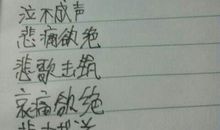 泣不成声
悲痛欲绝
悲歌击筑
哀痛欲绝